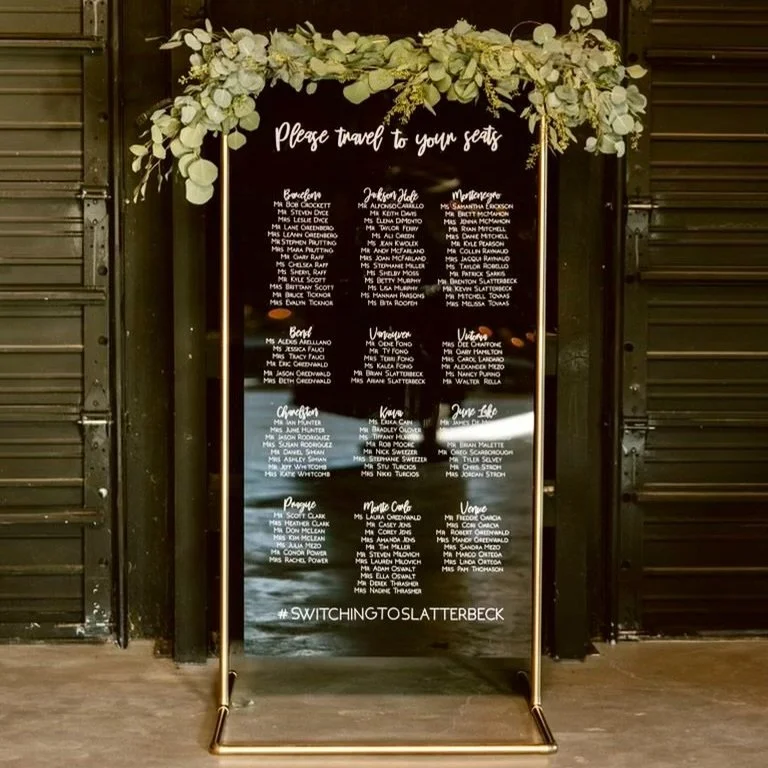 Please travel to your seats
Barcelona
Mr Bob Crockett
Mr Steven Dyce
Mrs Leslie Dyce
Mr Lane Greenberg
Mrs LeAnn Greenberg
Mr Stephen Prutting
Mrs Mara Prutting
Mr Gary Raff
Ms Chelsea Raff
Ms Sheryl Raff
Mr Kyle Scott
Mrs Brittany Scott
Mr Bruce Ticknor
Mrs Evalyn Ticknor
Jackson Hole
Mr Alfonso Carrillo
Mr Keith Davis
Ms Elena DiMento
Mr Taylor Ferry
Ms Ali Green
Ms Jean Kwolek
Mr Andy McFarland
Mrs Joan McFarland
Ms Stephanie Miller
Ms Shelby Moss
Ms Betty Murphy
Ms Lisa Murphy
Ms Hannah Parsons
Ms Bita Roofeh
Montenegro
Ms Samantha Erickson
Mr Brett McMahon
Mrs Jenna McMahon
Mr Ryan Mitchell
Mrs Dane Mitchell
Mr Kyle Pearson
Mr Collin Raynaud
Mrs Jacqui Raynaud
Ms Taylor Robello
Mr Patrick Sarkis
Mr Brenton Slatterbeck
Mr Kevin Slatterbeck
Mr Mitchell Tovaas
Mrs Melissa Tovaas
Bend
Ms Alexis Arellano
Ms Jessica Fauci
Mrs Tracy Fauci
Mr Eric Greenwald
Mr Jason Greenwald
Mrs Beth Greenwald
Vancouver
Mr Gene Fong
Mr Ty Fong
Mrs Terri Fong
Ms Kalea Fong
Mr Brian Slatterbeck
Mrs Ariane Slatterbeck
Victoria
Mrs Dee Chiaffone
Mr Gary Hamilton
Mrs Carol Lardaro
Mr Alexander Mezo
Ms Nancy Puping
Mr Walter Rella
Charleston
Mr Ian Hunter
Mrs June Hunter
Mr Jason Rodriguez
Mrs Susan Rodriguez
Mr Daniel Simian
Mrs Ashley Simian
Mr Jeff Whitcomb
Mrs Katie Whitcomb
Kauai
Ms. Erika Cain
Mr Bradley Glover
Ms Tiffany Hunter
Mr Rob Moore
Mr Nick Sweezer
Mrs Stephanie Sweezer
Mr Stu Turcios
Mrs Nikki Turcios
June Lake
Mr James De
Mr Brian Malette
Mr Greg Scarborough
Mr Tyler Selvey
Mr Chris Stroh
Mrs Jordan Stroh
Prague
Mr Scott Clark
Mrs Heather Clark
Mr Don McLean
Mrs Kim McLean
Ms Julia Mezo
Mr Conor Power
Mrs Rachel Power
Monte Carlo
Ms Laura Greenwald
Mr Casey Jens
Mr Corey Jens
Mrs Amanda Jens
Mr Tim Miller
Mr Steven Milovich
Mrs Lauren Milovich
Mr Adam Oswalt
Mrs Ella Oswalt
Mr Derek Thrasher
Mrs Nadine Thrasher
Venice
Mr Freddie Garcia
Mrs Cori Garcia
Mr Robert Greenwald
Mrs Mandy Greenwald
Mrs Sandra Mezo
Mr Marco Ortega
Mrs Linda Ortega
Mrs Pam Thomason
#SWITCHINGTOSLATTERBECK